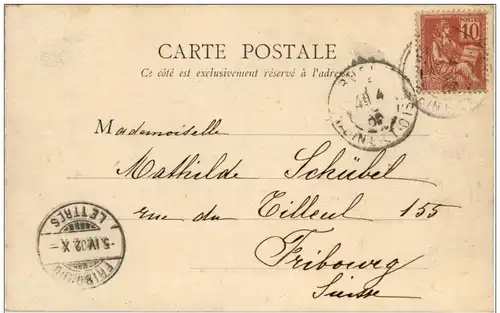 CARTE POSTALE
Ce côté est exclusivement réservé à l'adresse
POSTES
10
Mademoiselle
Mathilde Schübel
rue du Tilleul 155
Fribourg
Suisse
LETTRES
-5.IV.02.X-
FRIBOURG